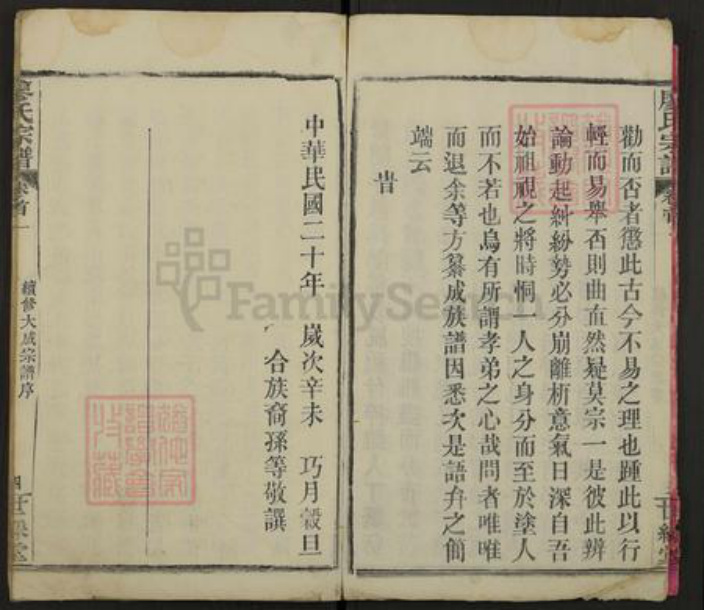 廖氏宗譜
卷首
勸而否者懲此古今不易之理也踵此以行
輕而易舉否則曲直然疑莫宗一是彼此辨
論動起糾紛勢必分崩離析意氣日深自吾
始祖視之將時恫一人之身分而至於塗人
而不若也烏有所謂孝弟之心哉問者唯唯
而退余等方纂成族譜因悉次是語弁之簡
端云
旹
中華民國二十年 歲次辛未 巧月穀旦
合族裔孫等敬譔
廖氏宗譜
卷首一
續修大成宗譜序
四
世綵堂
FamilySearch